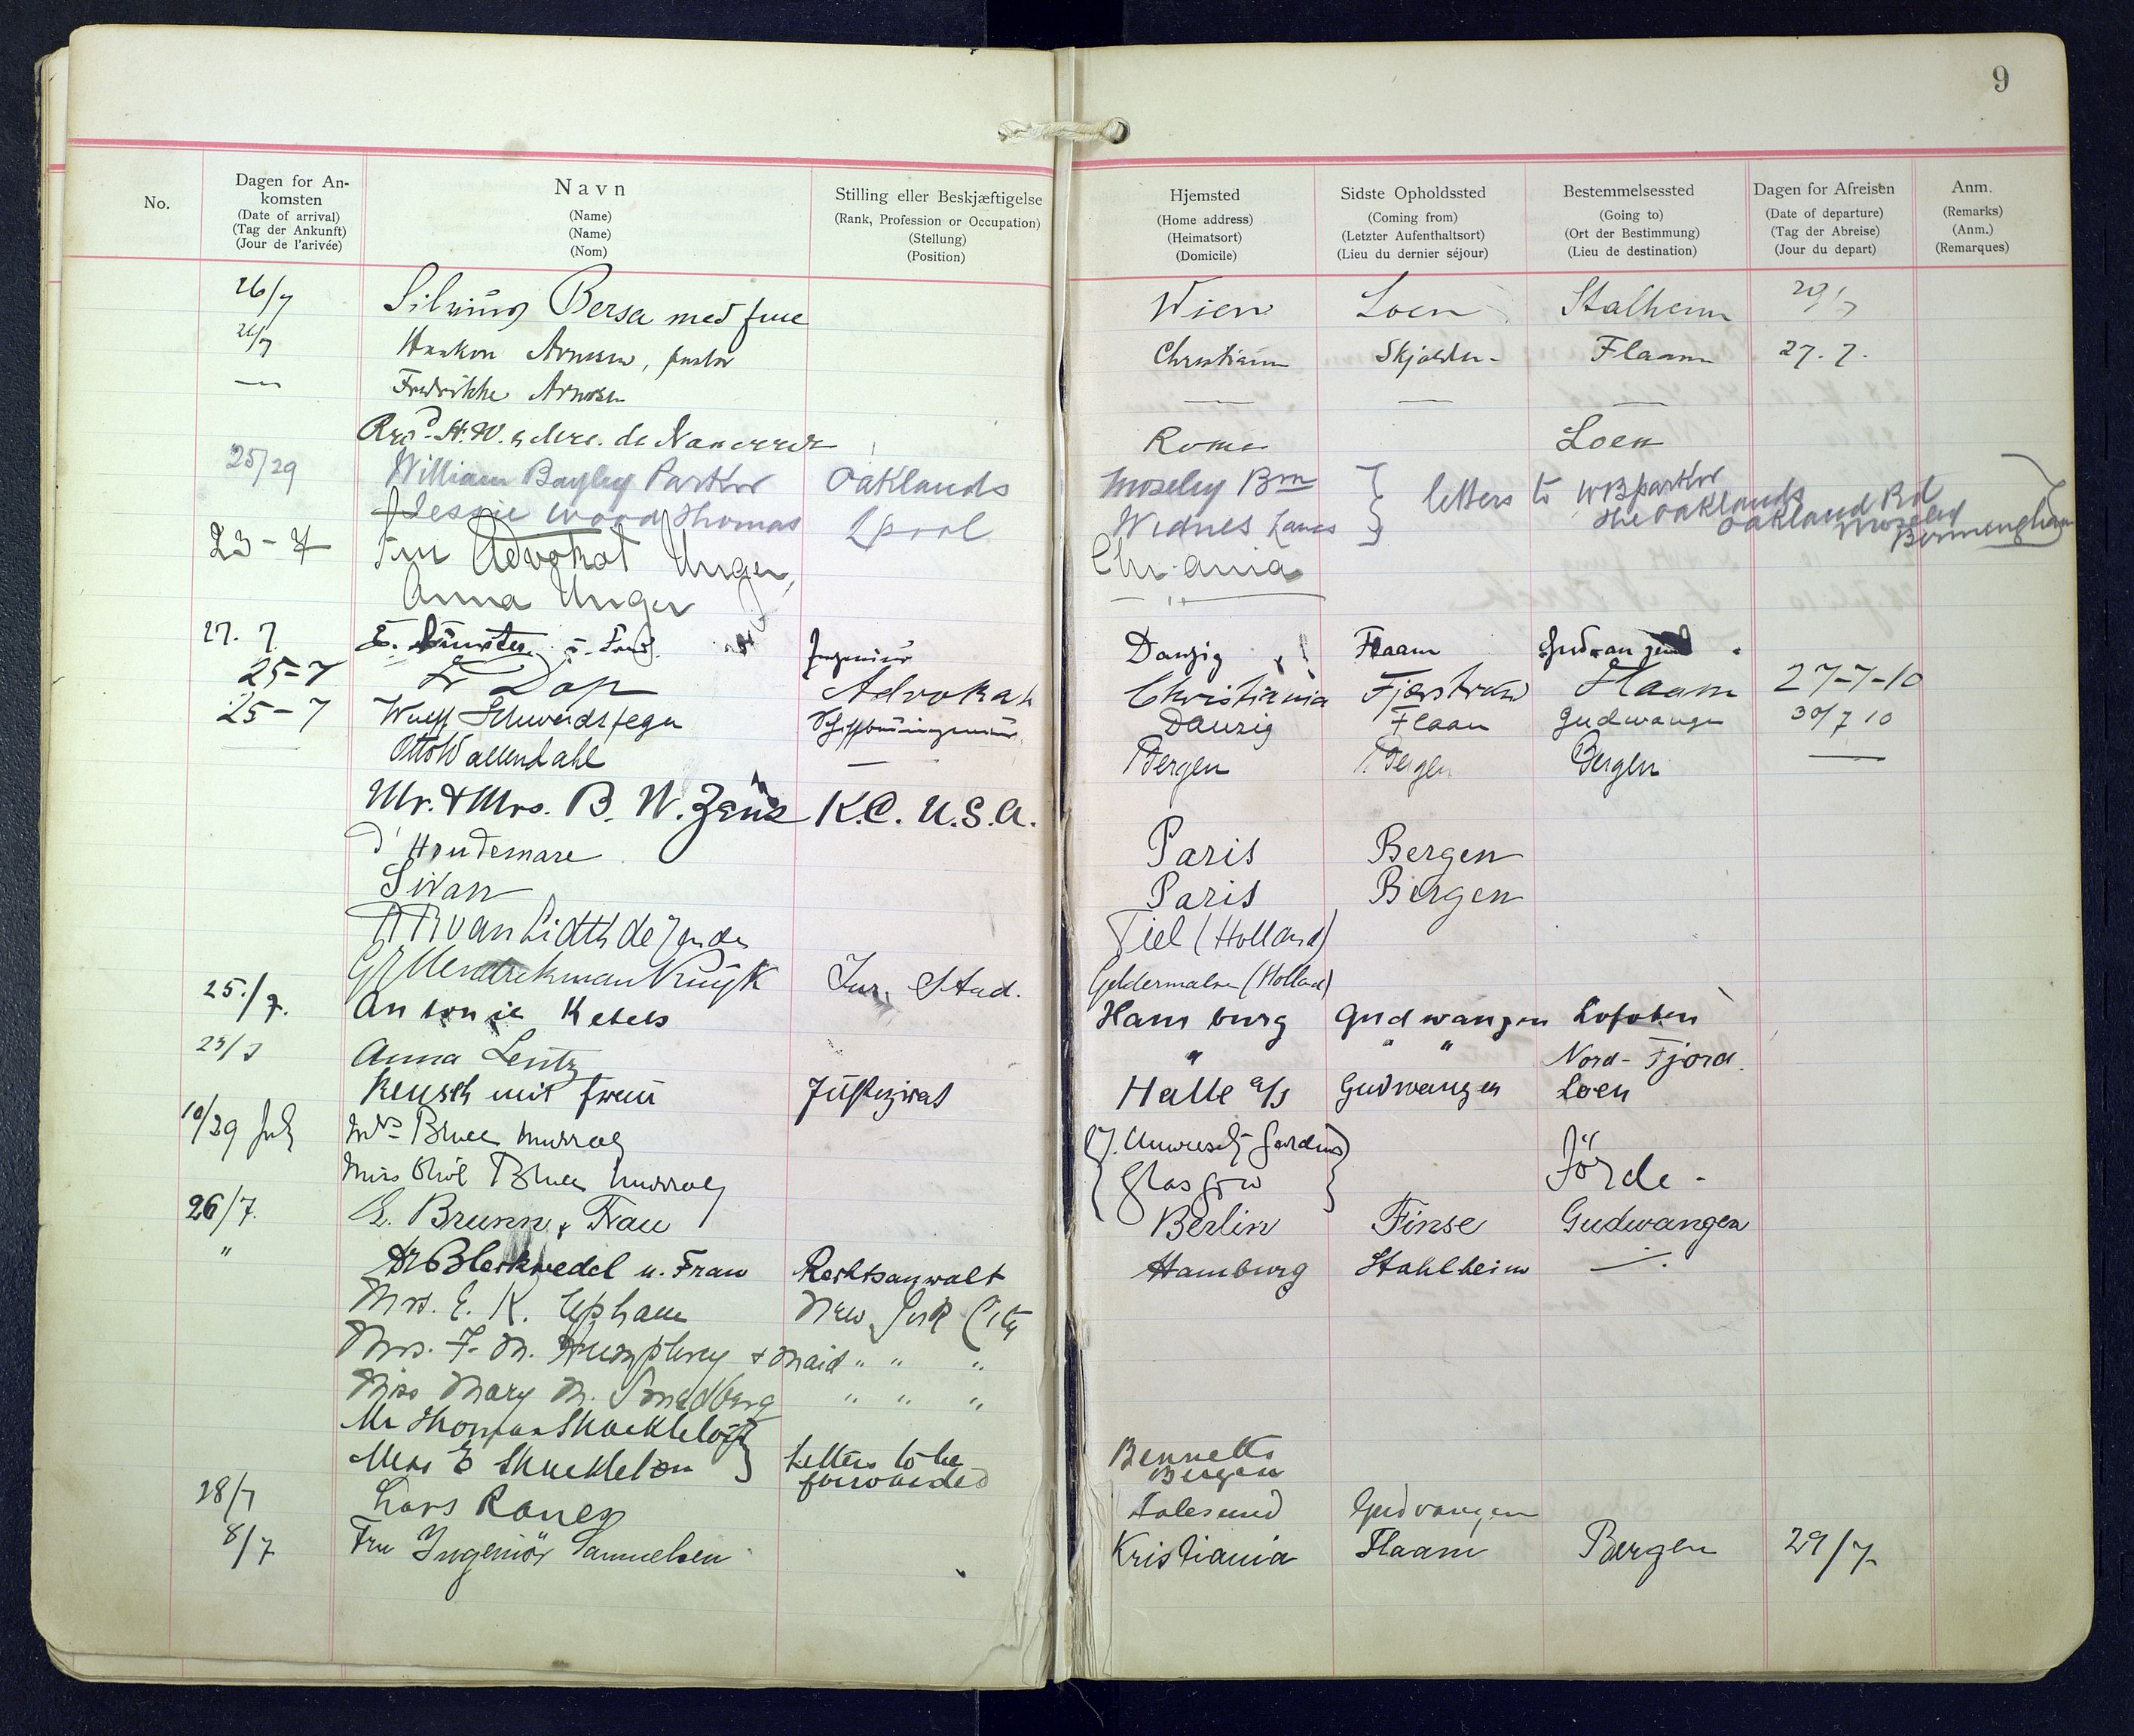 9
No.
Dagen for An-
komsten
(Date of arrival)
(Tag der Ankunft)
(Jour de l'arivée)
Navn
(Name)
(Name)
(Nom)
Stilling eller Beskjæftigelse
(Rank, Profession or Occupation)
(Stellung)
(Position)
Hjemsted
(Home address)
(Heimatsort)
(Domicile)
Sidste Opholdssted
(Coming from)
(Letzter Aufenthaltsort)
(Lieu du dernier séjour)
Bestemmelsessted
(Going to)
(Ort der Bestimmung)
(Lieu de destination)
Dagen for Afreisen
(Date of departure)
(Tag der Abreise)
(Jour du depart)
Anm.
(Remarks)
(Anm.)
(Remarques)
26/7 Bersa med frue Wien Loen Stalheim 29/7
26/7 Haakon Arnesen, pastor Christiania Skjolden Flaam 27.7.
— Fredrikke Arnesen — — —
H. W. Roma Loen
25/29 William Bayley Parker Oaklands Moseley Bm } letters to W B Parker
Jessie Wood Thomas Lpool Widnes Lancs } The Oaklands Oakland Rd Moseley Birmingham
23-7 Fru Advokat Unger, Chr.ania
Anna Unger — " —
27.7. E. Ingenieur Danzig Flaam
25-7 Advokat Christiania Flaam 27-7-10
25-7 Wulff Schwerdtfeger Schiffbauingenieur Danzig Flaam Gudwangen 30/7 10
— Otto Wallendahl — Bergen Bergen Bergen —
Mr. & Mrs. B. W. K.C. U.S.A.
d'Houdemare Paris Bergen
Sivan Paris Bergen
van Lidth de Jeude Tiel (Holland)
Kuijk Jur. Stud. Geldermalsen (Holland)
25./7. Antonie Kebels Hamburg Gudwangen Lofoten
25/7 Anna Lentz " " " Nord-Fjord.
Reusch mit Frau Justizrat Halle a/S Gudwangen Loen
10/29 July Mrs Bruce Murray (7. University Gardens)
Miss Bruce Murray { Glasgow } Förde -
26/7. E. Brunn & Frau Berlin Finse Gudwangen
" Dr Blerkwedel u. Frau Rechtsanwalt Hamburg Stahlheim —
Mrs. E. K. Upham New York City
Mrs. F. M. Humphrey & maid " " "
Miss Mary M. Smedberg " " "
Mr Thomas Shackleton }
Miss E Shackleton } Letters to be forwarded Bennetts Bergen
28/7 Lars Aalesund Gudvangen
8/7 Fru Ingeniör Samuelsen Kristiania Flaam Bergen 29/7